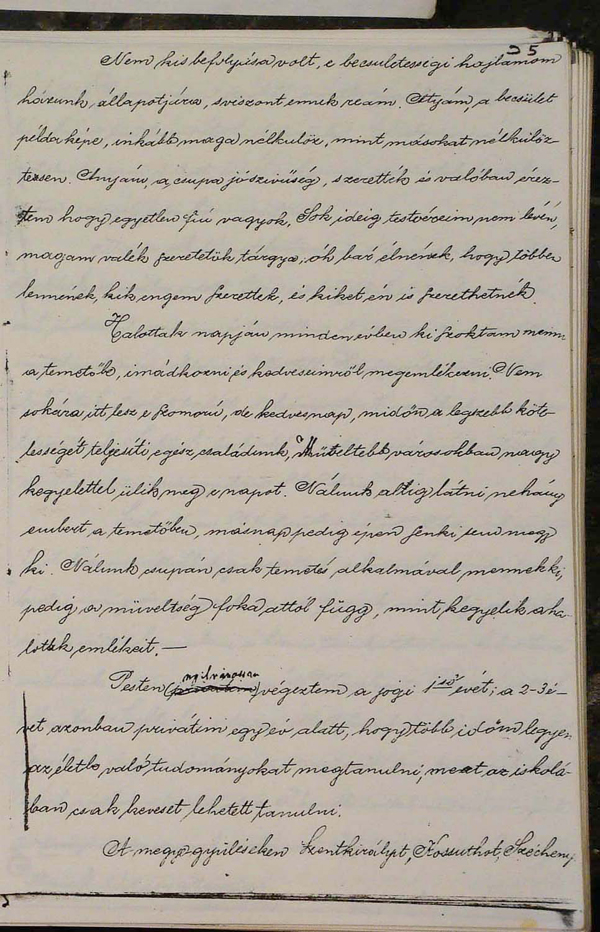 25
Nem kis befolyása volt, e becsületességi hajlamom
házunk állapotjára, sviszont ennek reám. Atyám, a becsület
példaképe, inkább maga nélkülöz, mint másokat nélkülöz-
tessen. Anyám, a csupa jószivüség, szerették és valóban érez-
tem hogy egyetlen fiú vagyok. Sok ideig testvéreim nem lévén,
magam valék szeretetük tárgya, óh bár élnének, hogy többen
lennének, kik engem szerettek, és kiket én is szerethetnék.
Halottak napján minden évben ki szoktam menni
a temetőbe, imádkozni és kedveseimről megemlékezni. Nem
sokára itt lesz e szomorú, de kedves nap, midőn a legszebb köte-
lességét teljesíti egész családunk. Müveltebb városokban nagy
kegyelettel ülik meg e napot. Nálunk alig látni nehány
embert a temetőben, másnap pedig épen senki sem megy
ki. Nálunk csupán csak temetés alkalmával mennek ki,
pedig a müveltség foka attól függ, mint kegyelik a ha-
lottak emlékeit. —
nyilvánosan
Pesten végeztem a jogi 1ső évét; a 2-3 é-
vet azonban privátim egy év alatt, hogy több időm legyen
az életbe való tudományokat megtanulni, mert az iskolá-
ban csak keveset lehetett tanulni.
A megye gyüléseken Szentkirályit, Kossuthot, Széchenyi